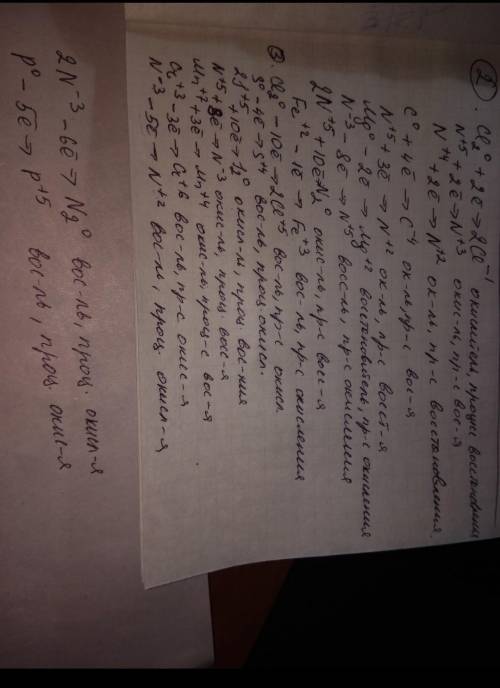 2. Cl₂⁰ + 2ē → 2Cl⁻¹ окислитель, процесс восстановления
N⁺⁵ + 2ē → N⁺³ окис-ль, пр-с вос-я
N⁺⁴ + 2ē → N⁺² ок-ль, пр-с восстановления.
C⁰ + 4ē → C⁻⁴ ок-ль, пр-с вос-я
N⁺⁵ + 3ē → N⁺² ок-ль, пр-с восст-я
Mg⁰ - 2ē → Mg⁺² восстановитель, пр-с окисления
N⁻³ - 8ē → N⁺⁵ восс-ль, пр-с окисления
2N⁺⁵ + 10ē → N₂⁰ окис-ль, пр-с вос-я
Fe⁺² - 1ē → Fe⁺³ вос-ль, пр-с окисления
3. Cl₂⁰ - 10ē → 2Cl⁺⁵ вос-ль, пр-с окисл.
S⁰ - 4ē → S⁺⁴ вос-ль, проц окисл.
2J⁺⁵ + 10ē → J₂⁰ окисл-ль, проц вос-ния
N⁺⁵ + 8ē → N⁻³ окис-ль, проц вос-я
Mn⁺⁷ + 3ē → Mn⁺⁴ окис-ль, проц-с вос-я
Cr⁺³ - 3ē → Cr⁺⁶ вос-ль, пр-с окис-я
N⁻³ - 5ē → N⁺² вос-ль, проц. окисл-я
2N⁻³ - 6ē → N₂⁰ вос-ль, проц. окисл-я
P⁰ - 5ē → P⁺⁵ вос-ль, проц окис-я